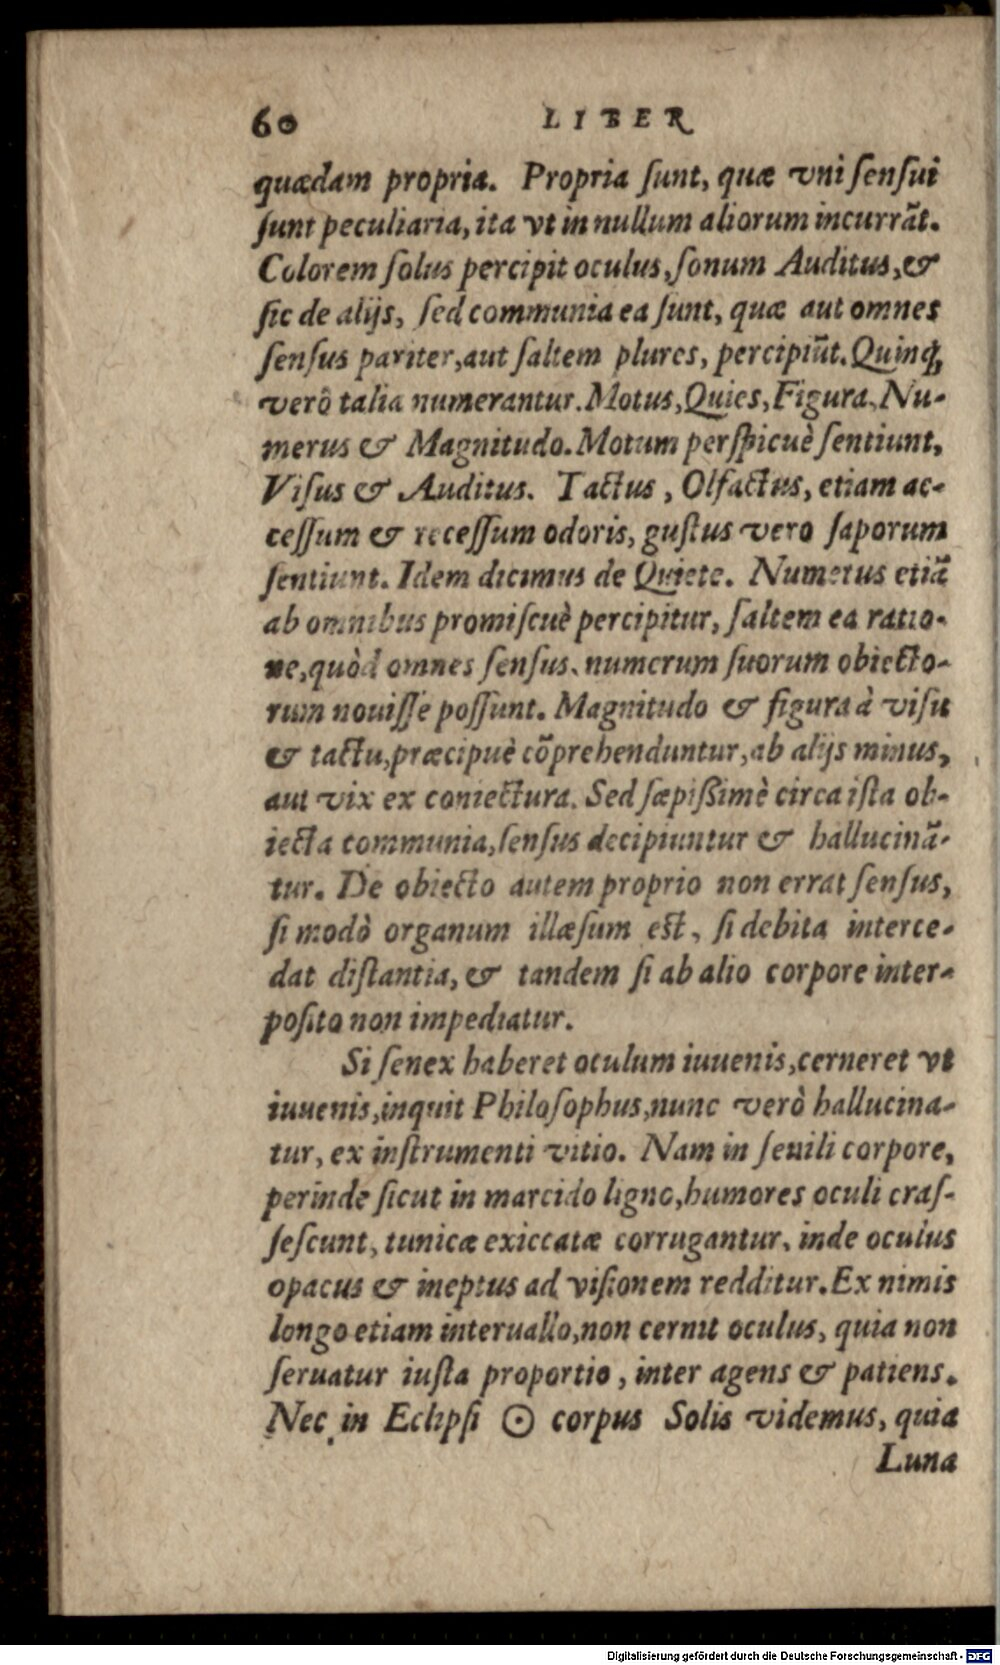 60 LIBER
quædam propria. Propria ſunt, quæ vni ſenſui
ſunt peculiaria, ita vt in nullum aliorum incurrãt.
Colorem ſolus percipit oculus, ſonum Auditus, &
ſic de alijs, ſed communia ea ſunt, quæ aut omnes
ſenſus pariter, aut ſaltem plures, percipiũt. Quinq́;
verò talia numerantur. Motus, Quies, Figura, Nu-
merus & Magnitudo. Motum perſpicuè ſentiunt,
Viſus & Auditus. Tactus, Olfactus, etiam ac-
ceſſum & receſſum odoris, guſtus vero ſaporum
ſentiunt. Idem dicimus de Quiete. Numerus etiã
ab omnibus promiſcuè percipitur, ſaltem ea ratio-
ne, quòd omnes ſenſus, numerum ſuorum obiecto-
rum nouiſſe poſſunt. Magnitudo & figura à viſu
& tactu, præcipuè cõprehenduntur, ab alijs minus,
aut vix ex coniectura. Sed ſæpißimè circa iſta ob-
iecta communia, ſenſus decipiuntur & hallucinã-
tur. De obiecto autem proprio non errat ſenſus,
ſi modò organum illæſum eſt, ſi debita interce-
dat diſtantia, & tandem ſi ab alio corpore inter-
poſito non impediatur.
Si ſenex haberet oculum iuuenis, cerneret vt
iuuenis, inquit Philoſophus, nunc verò hallucina-
tur, ex inſtrumenti vitio. Nam in ſenili corpore,
perinde ſicut in marcido ligno, humores oculi craſ-
ſeſcunt, tunicæ exiccatæ corrugantur, inde oculus
opacus & ineptus ad viſionem redditur. Ex nimis
longo etiam interuallo, non cernit oculus, quia non
ſeruatur iuſta proportio, inter agens & patiens.
Nec in Eclipſi ☉ corpus Solis videmus, quia
Luna
Digitalisierung gefördert durch die Deutsche Forschungsgemeinschaft - DFG